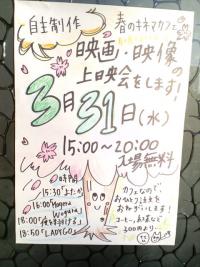 自主制作
春のキネマカフェ
映画・映像の
上映会をします!
3月31日(水)
15:00～20:00
入場無料
時間
15:30「
16:00「
18:00「
18:50「LADYGO」
カフェなので、
おひとり1注文を
おねがいします!
コーヒー、お茶など
300円より。